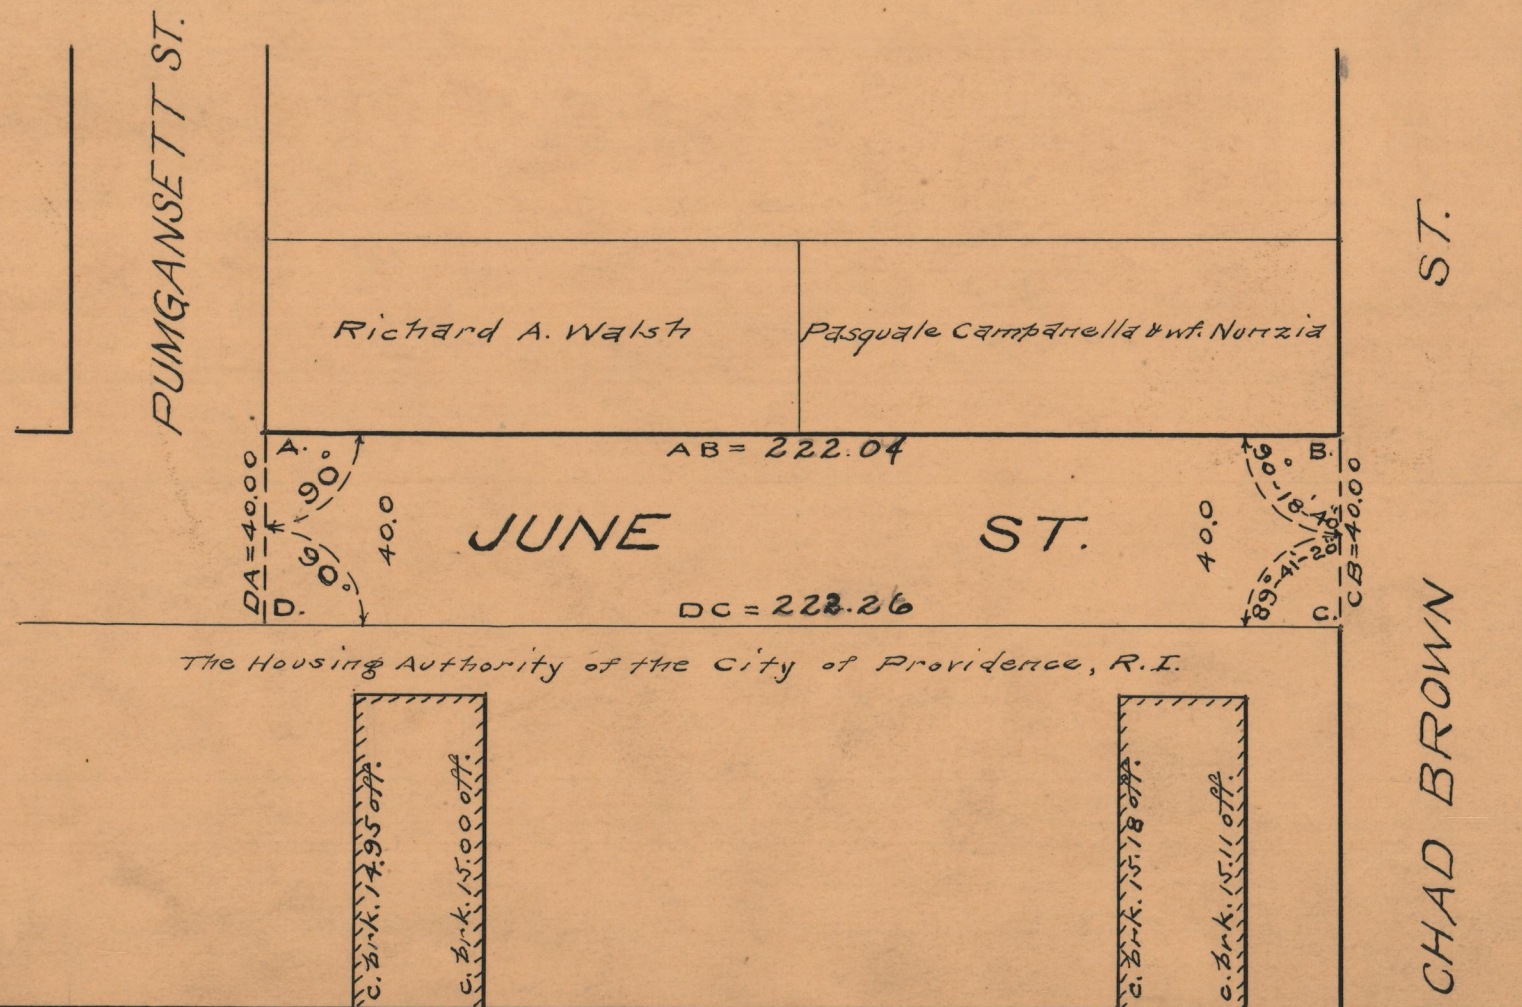 PUMGANSETT ST.
ST.
Richard A. Walsh
Pasquale Campanella & wf. Nunzia
A.
AB = 222.04
B.
90°
DA=40.00
40.0
JUNE ST.
40.0
CB=40.00
90°
89°-41'-20"
D.
DC = 222.26
C.
The Housing Authority of the City of Providence, R.I.
CHAD BROWN
c. brk. 14.95 off.
c. brk. 15.00 off.
c. brk. 15.18 off.
c. brk. 15.11 off.